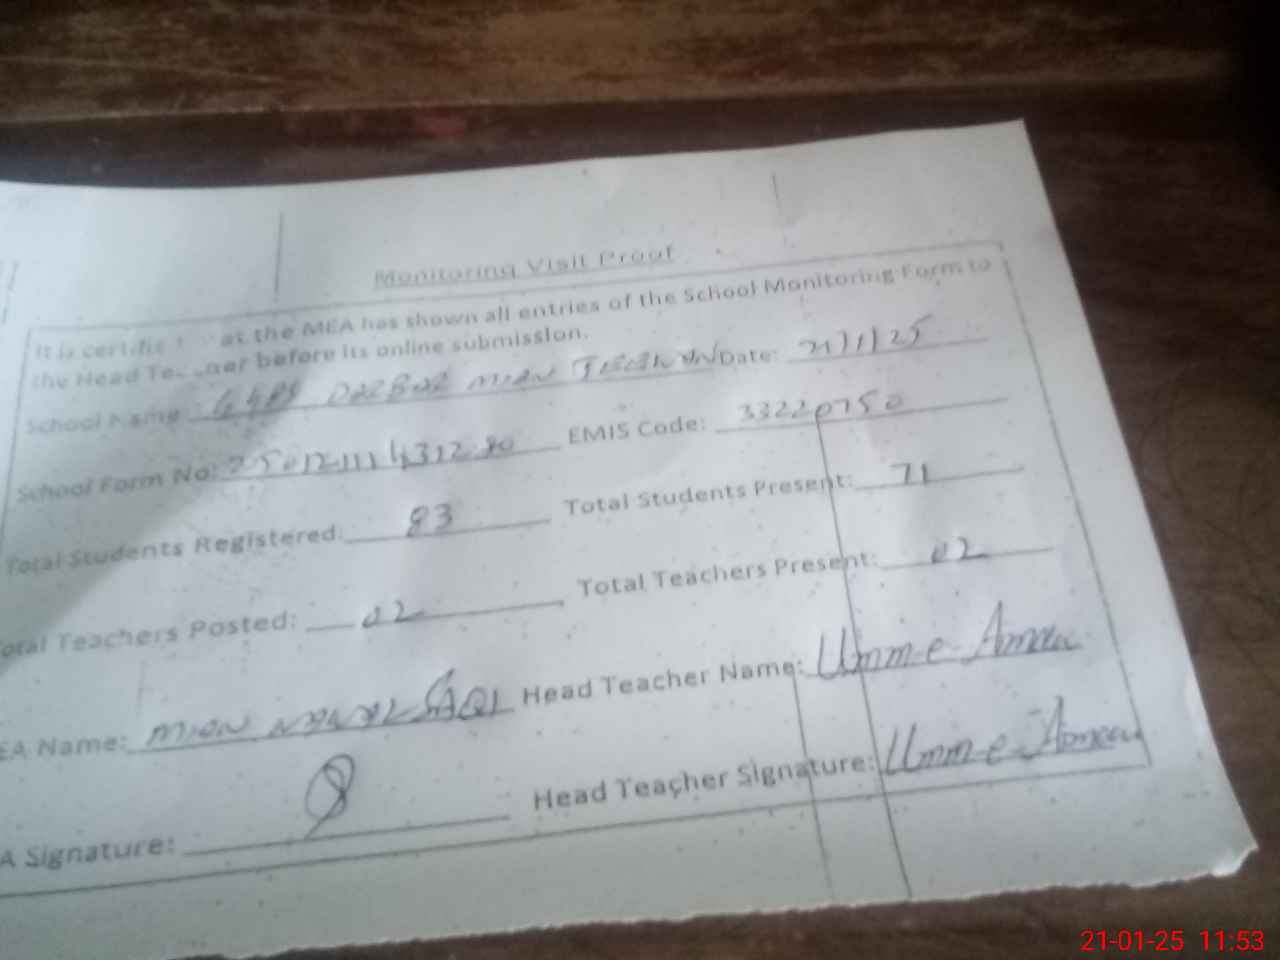 Monitoring Visit Proof
It is at the MEA has shown all entries of the School Monitoring Form to
the Head before its online submission.
School Name: GGPS Date: 21/1/25
School Form No: EMIS Code: 33220750
Total Students Registered: 83 Total Students Present: 71
Total Teachers Posted: 02 Total Teachers Present: 02
EA Name: MIAN Head Teacher Name: Umm-e-
A Signature: Head Teacher Signature: Umm-e-
21-01-25 11:53